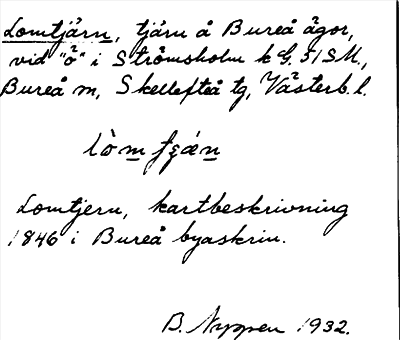 Lomtjärn, tjärn å Bureå ägor,
vid "ö" i Strömsholm k G. 51 SM.,
Bureå sn, Skellefteå tg, Västerb. l.
Lomtjern, kartbeskrivning
1846 i Bureå byaskrin.
B. Nyppen 1932.